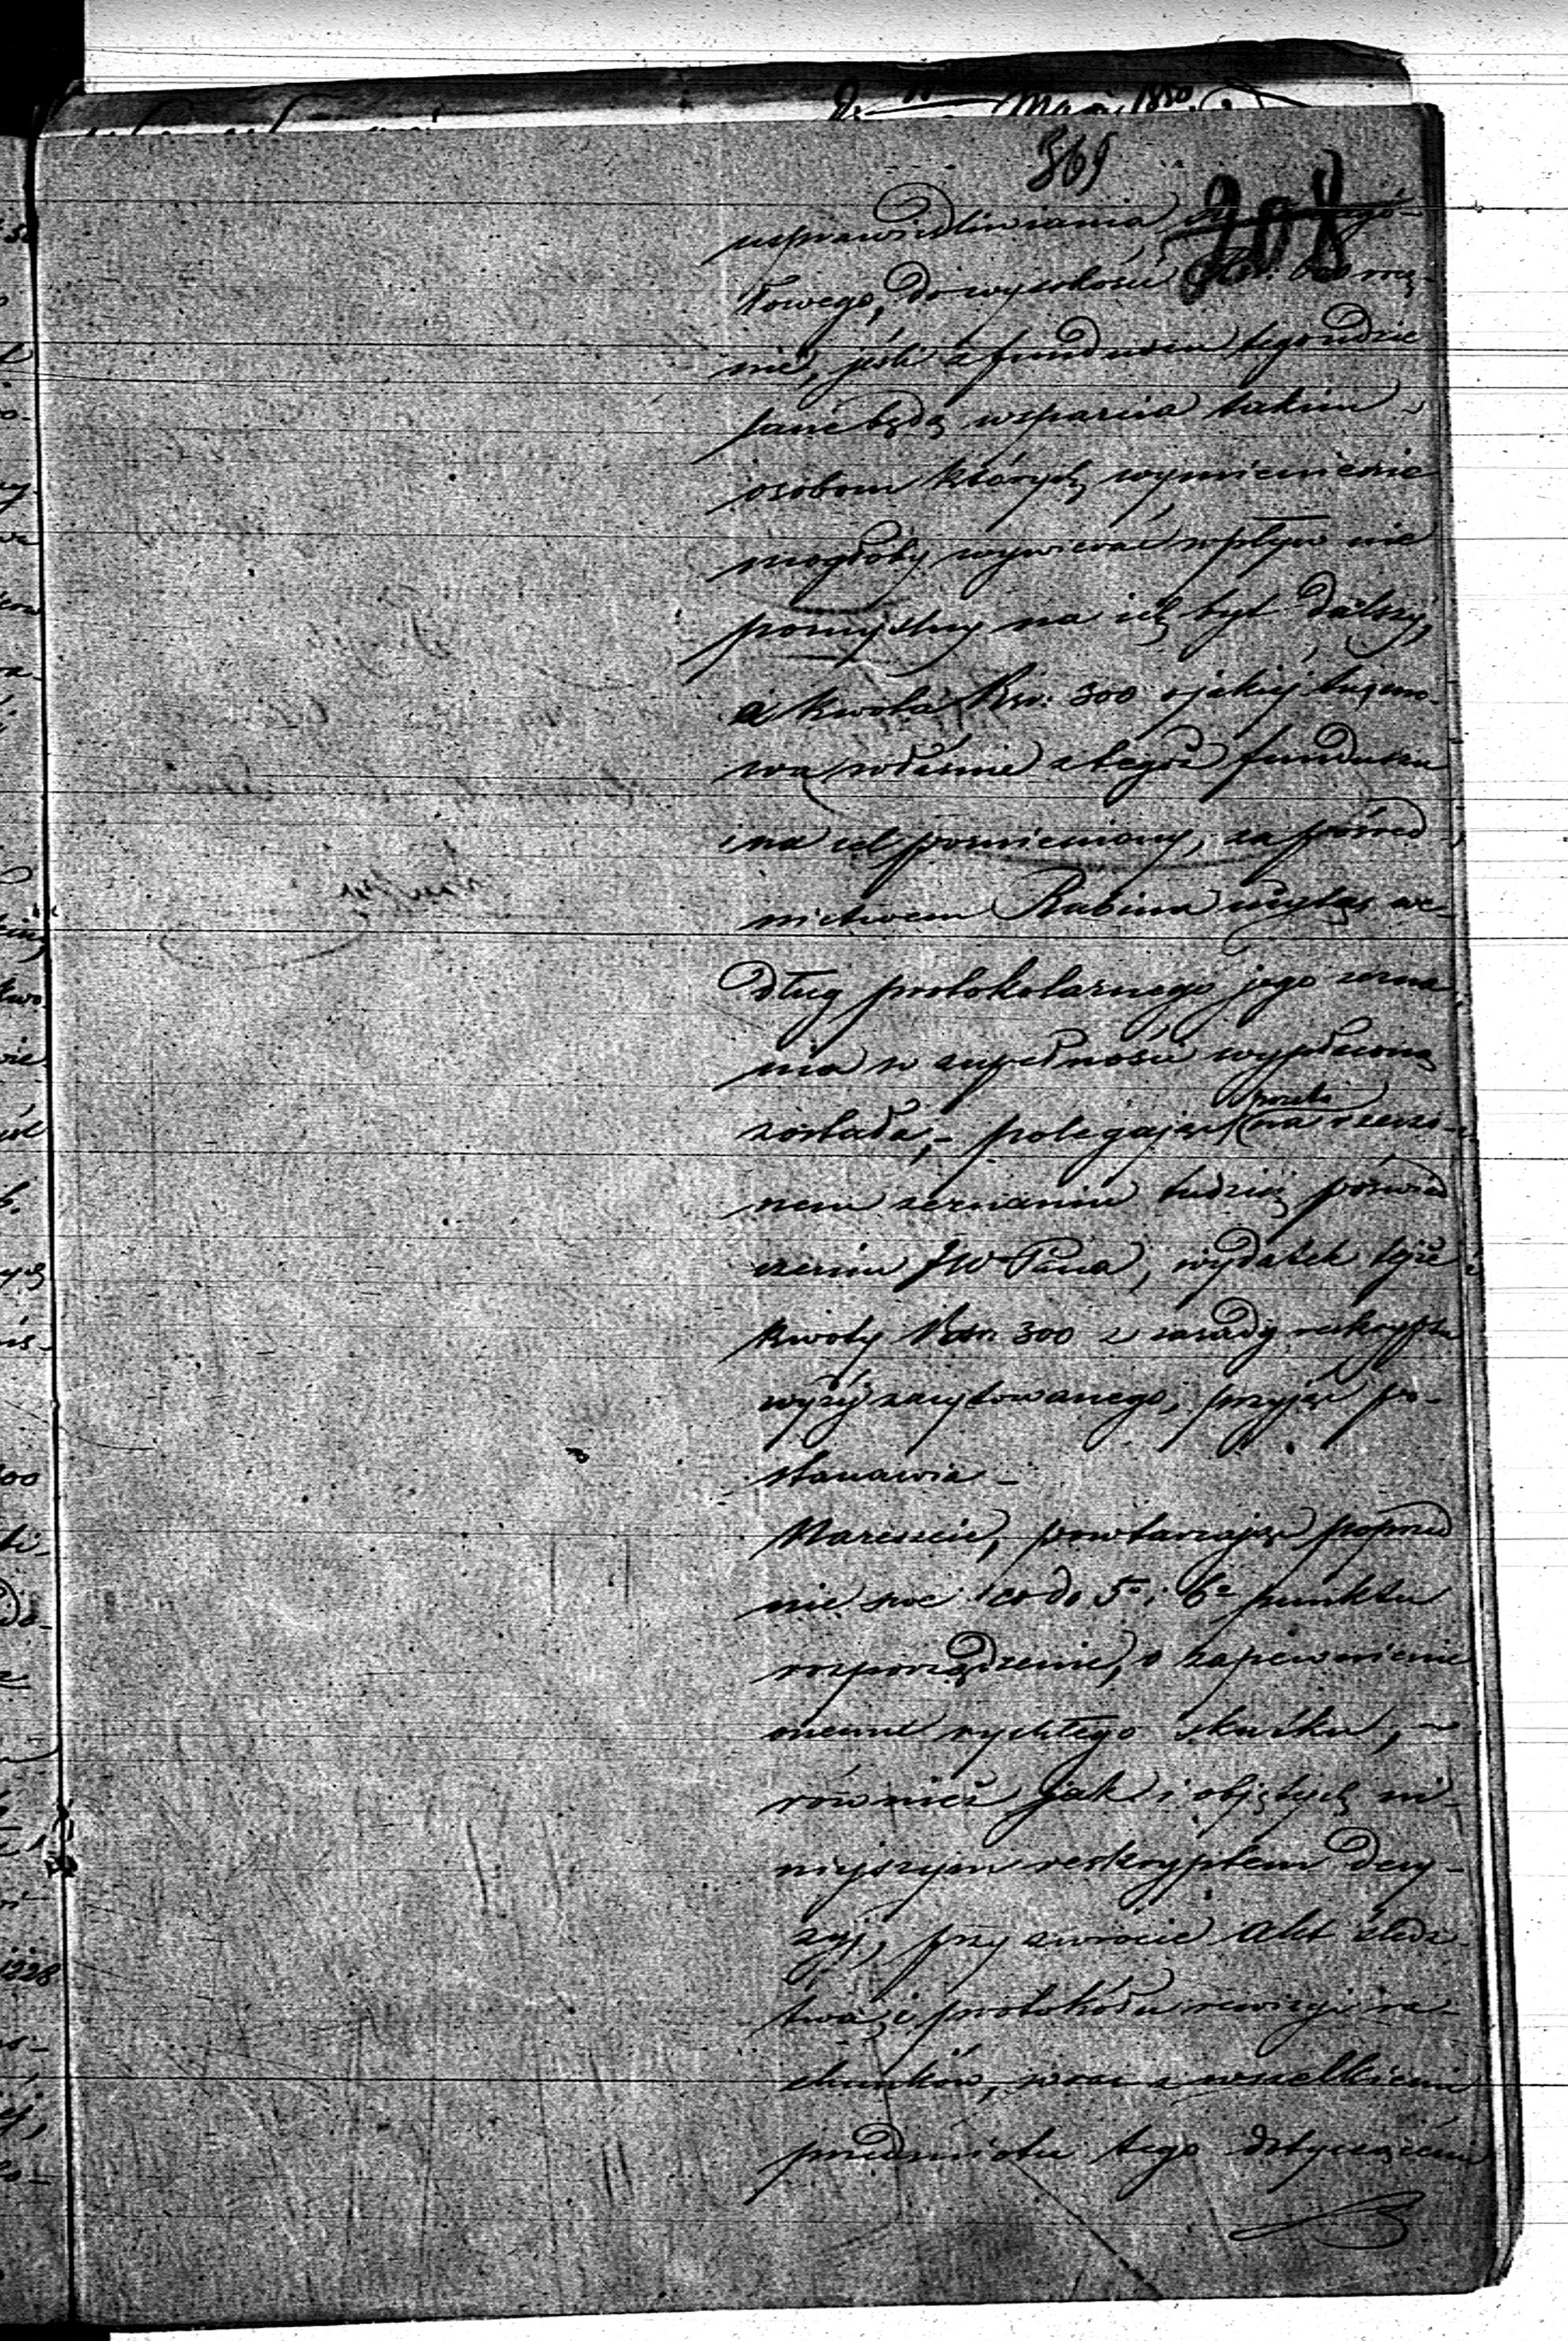 Maja 1850
369
208
usprawiedliwiania szczegó-
łowego, do wysokości Rsr. 600 rocz-
nie, jeśli z funduszu tego udzie
lane będą wsparcia takim
osobom których wymienienie
mogłoby wywierać wpływ nie
pomyślny na ich byt dalszy,
a kwota Rsr. 300 o jakiej tu mo-
wa właśnie z tegoż funduszu
i na cel pomieniony, za pośred
nictwem Rabina we-
dług protokolarnego jego zezna
nia w zupełności wypłaconą
została, - polegając na rzeczo-
nem zeznaniu tudzież poświad
czeniu JW Pana, wydatek tejże
kwoty Rsr. 300 z zasady reskryptu
wyżej zacytowanego, przyjąć po-
stanawia -
Nareszcie, powtarzając poprzed
nie swe co do 5º i 6º punktu
rozporządzenie, o zapewnienie
onemu rychłego skutku, ~
również jak i objętych ni-
niejszym reskryptem decy-
zyj, przy zwrocie akt śledz-
twa i protokółu rewizyi ra-
chunków, wraz z wszelkiemi
przedmiotu tego dotyczącemi